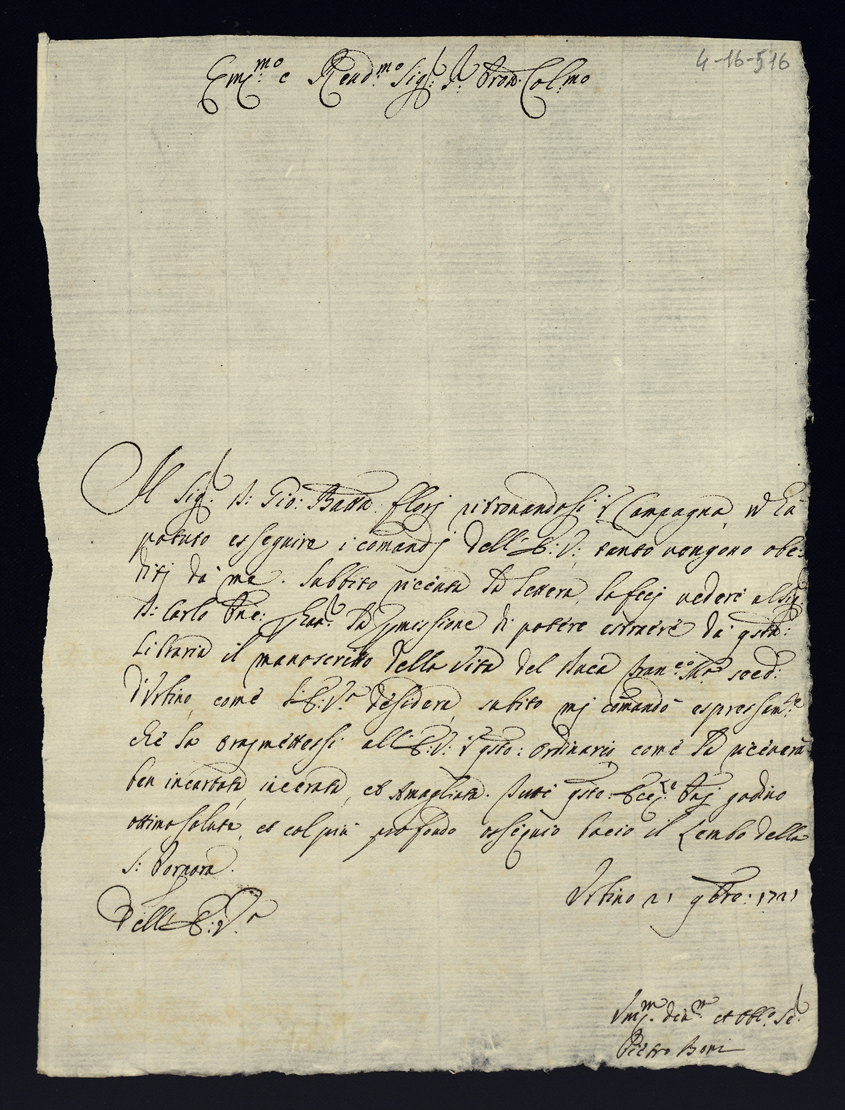 4-16-516
Em:mo e Rend:mo Sig: Pron: Col:mo
Il Sig: D: Gio: Batta: Flori ritrovandosi Campagna, ha
potuto esseguire i comandi dell'E: V:, tanto vengono obe:
diti da me. Subbito riceuta la lettera, la feci vedere al Sig:
D: Carlo la pmissione di potére estraére da qsta:
Libraria il manoscritto della Vita del Duca Fran:co Ma: secd:
d'Urbino, comé l'E: V:a desidera, subito mi comandò espressam:te
ché la trasmettessi all'E: V: qsto: ordinario comé la riceverà
ben incartata, incerata, et Tutti qsti: Ecc:mi godino
ottima salute, et col piu profondo ossequio bacio il Lembo della
S: Porpora.
Dell'E: V:a
Urbino 21 9bre: 1721
Um:mo Deu:mo et Obl:o Se:
Pietro Boni